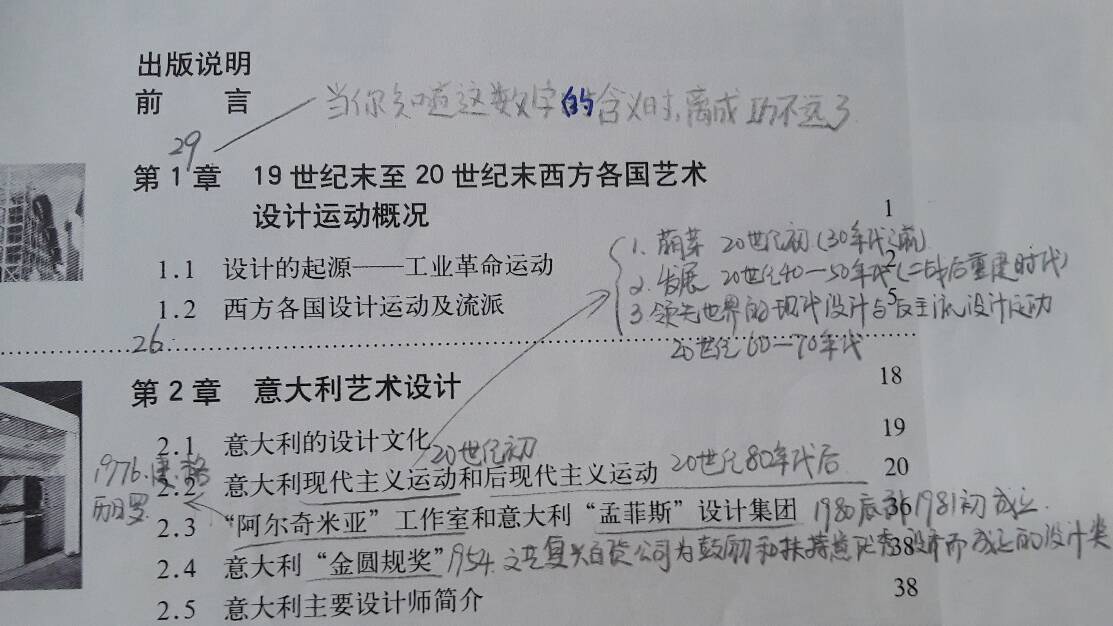 出版说明
前　言
当你知道这数字的含义时,离成功不远了
29
第 1 章　19 世纪末至 20 世纪末西方各国艺术
设计运动概况　1
1.1　设计的起源——工业革命运动　2
1.2　西方各国设计运动及流派　5
1. 萌芽 20世纪初(30年代前)
2. 发展 20世纪40—50年代(二战后重建时代)
3. 领先世界的现代设计与反主流设计运动
20世纪60—70年代
26
第 2 章　意大利艺术设计　18
2.1　意大利的设计文化　19
20世纪初
2.2　意大利现代主义运动和后现代主义运动　20
20世纪80年代后
1976.
2.3　“阿尔奇米亚”工作室和意大利“孟菲斯”设计集团　36
1980底 1981初 成立
2.4　意大利“金圆规奖”　38
1954. 文艺复兴百货公司为鼓励和扶持 而成立的设计类
2.5　意大利主要设计师简介　38